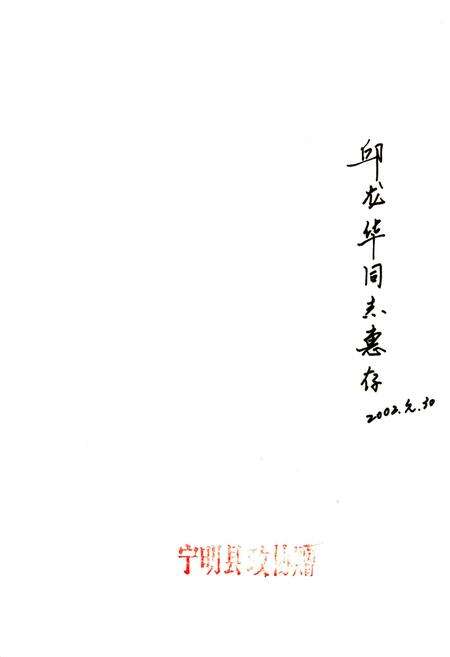 邱龙华同志惠存
2002.元.30
宁明县政协赠